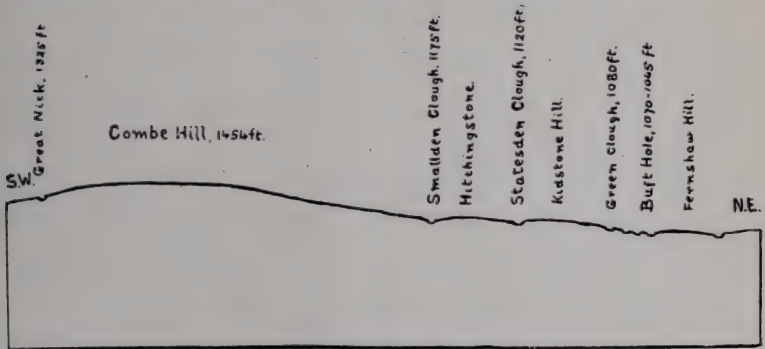 S.W.
Great Nick. 1325 ft
Combe Hill, 1454ft.
Smallden Clough. 1175 ft.
Hitchingstone.
Statesden Clough, 1120ft,
Kidstone Hill.
Green Clough, 1080ft.
Buft Hole, 1070-1065 ft
Fernshaw Hill.
N.E.